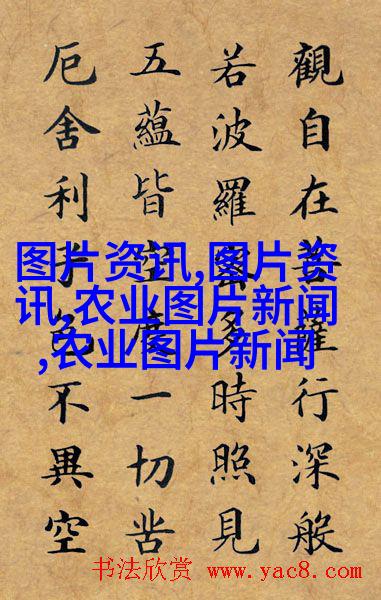 觀自在菩薩行深般
若波羅蜜多時照見
五蘊皆空度一切苦
厄舍利子色不異空
图片资讯,图片资
讯,农业图片新闻
,农业图片新闻
书法欣赏 www.yac8.com